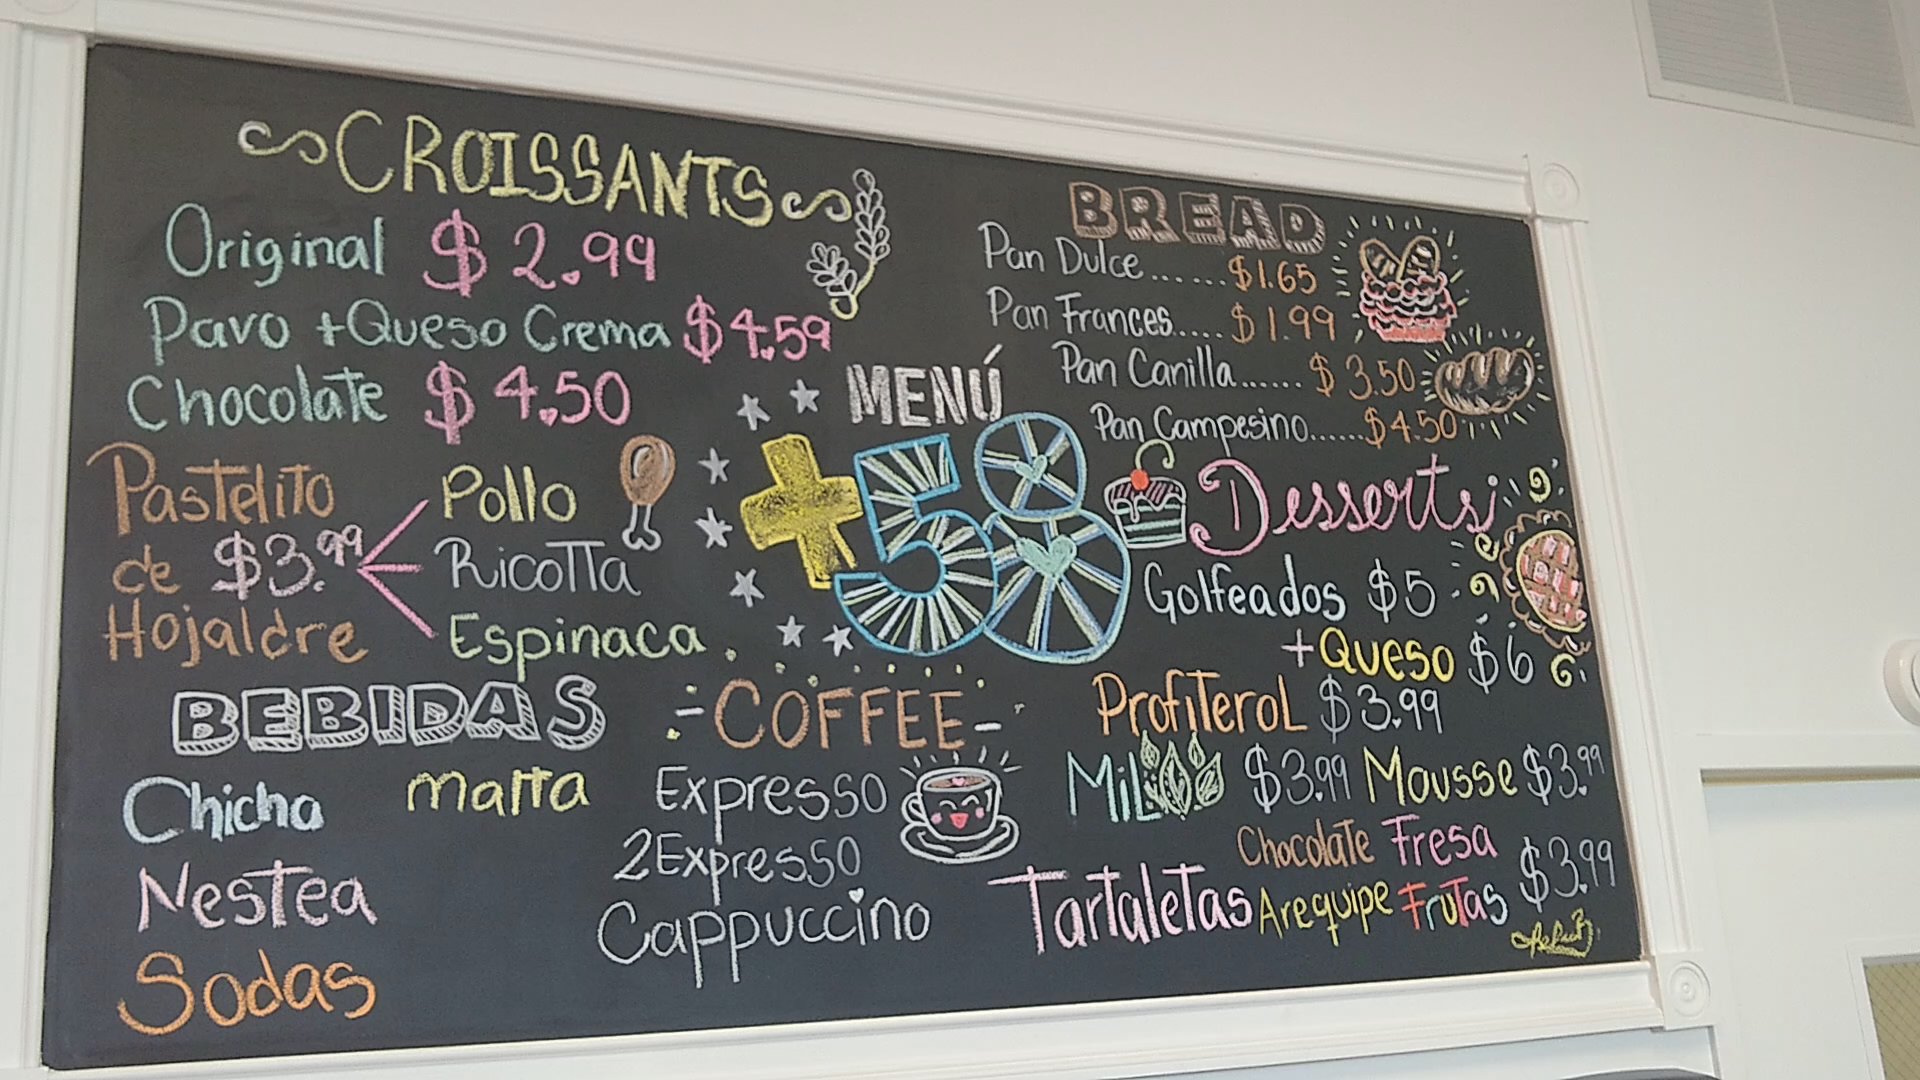 CROISSANTS
Original $2.99
Pavo +Queso Crema $4.59
Chocolate $4.50
Pastelito
de $3.99
Hojaldre
Pollo
Ricotta
Espinaca
BEBIDAS
Chicha Malta
Nestea
Sodas
MENÚ
+58
COFFEE
Expresso
2Expresso
Cappuccino
BREAD
Pan Dulce...... $1.65
Pan Frances.... $1.99
Pan Canilla...... $3.50
Pan Campesino...... $4.50
Desserts
Golfeados $5
+Queso $6
Profiterol $3.99
Milhojas $3.99 Mousse $3.99
Chocolate Fresa
Tartaletas Arequipe Frutas $3.99